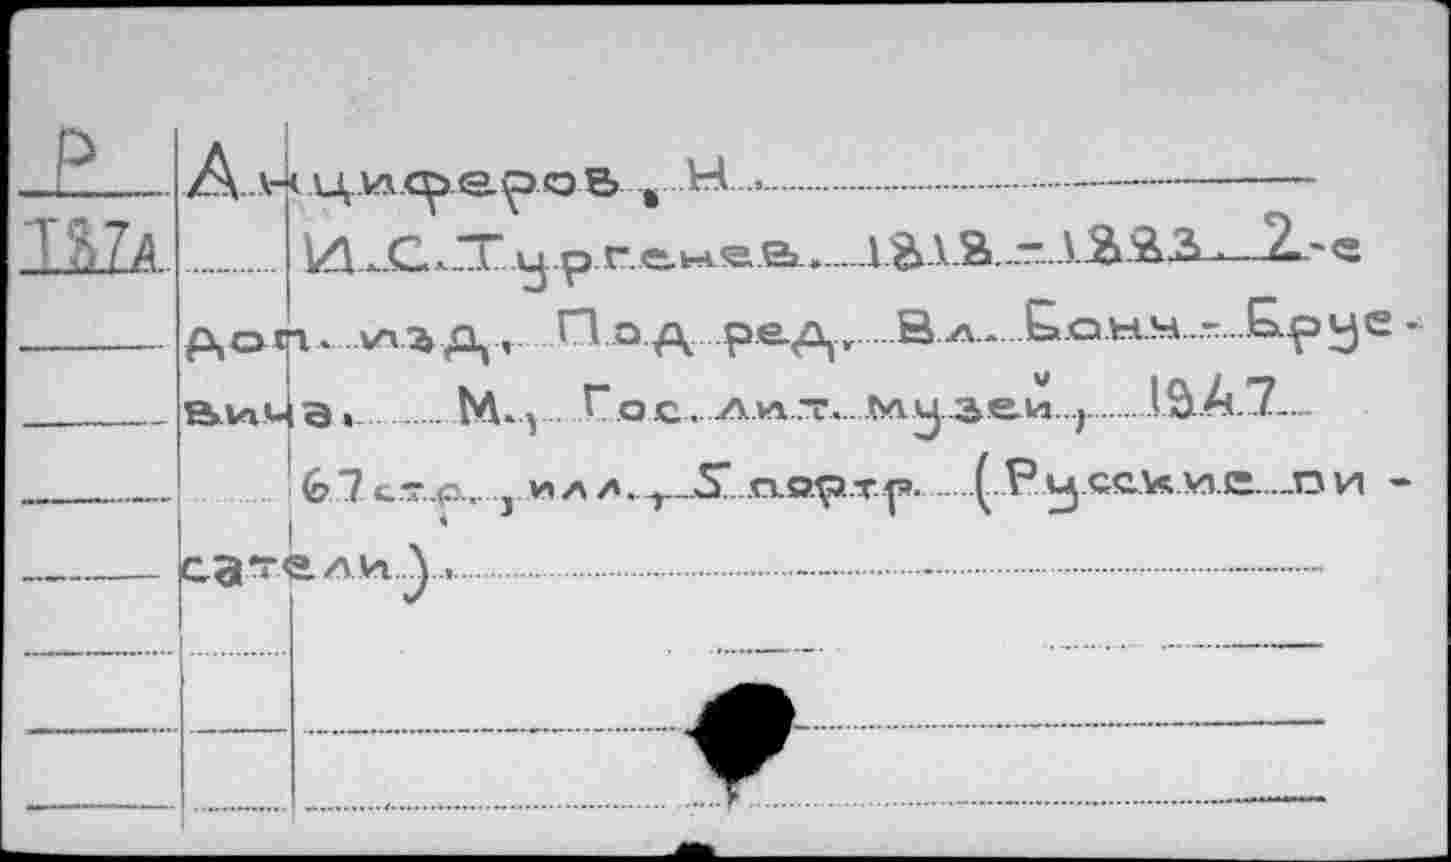 Р Анциферов, Н.
Т87А И.С.Тургенев. 1818-1883. 2-е
доп. изд., Под ред. Вл. Бонч-Бруе-
вича. М., Гос. лит. музей, 1947.
67 стр., илл., 5 портр. (Русские пи-
сатели).